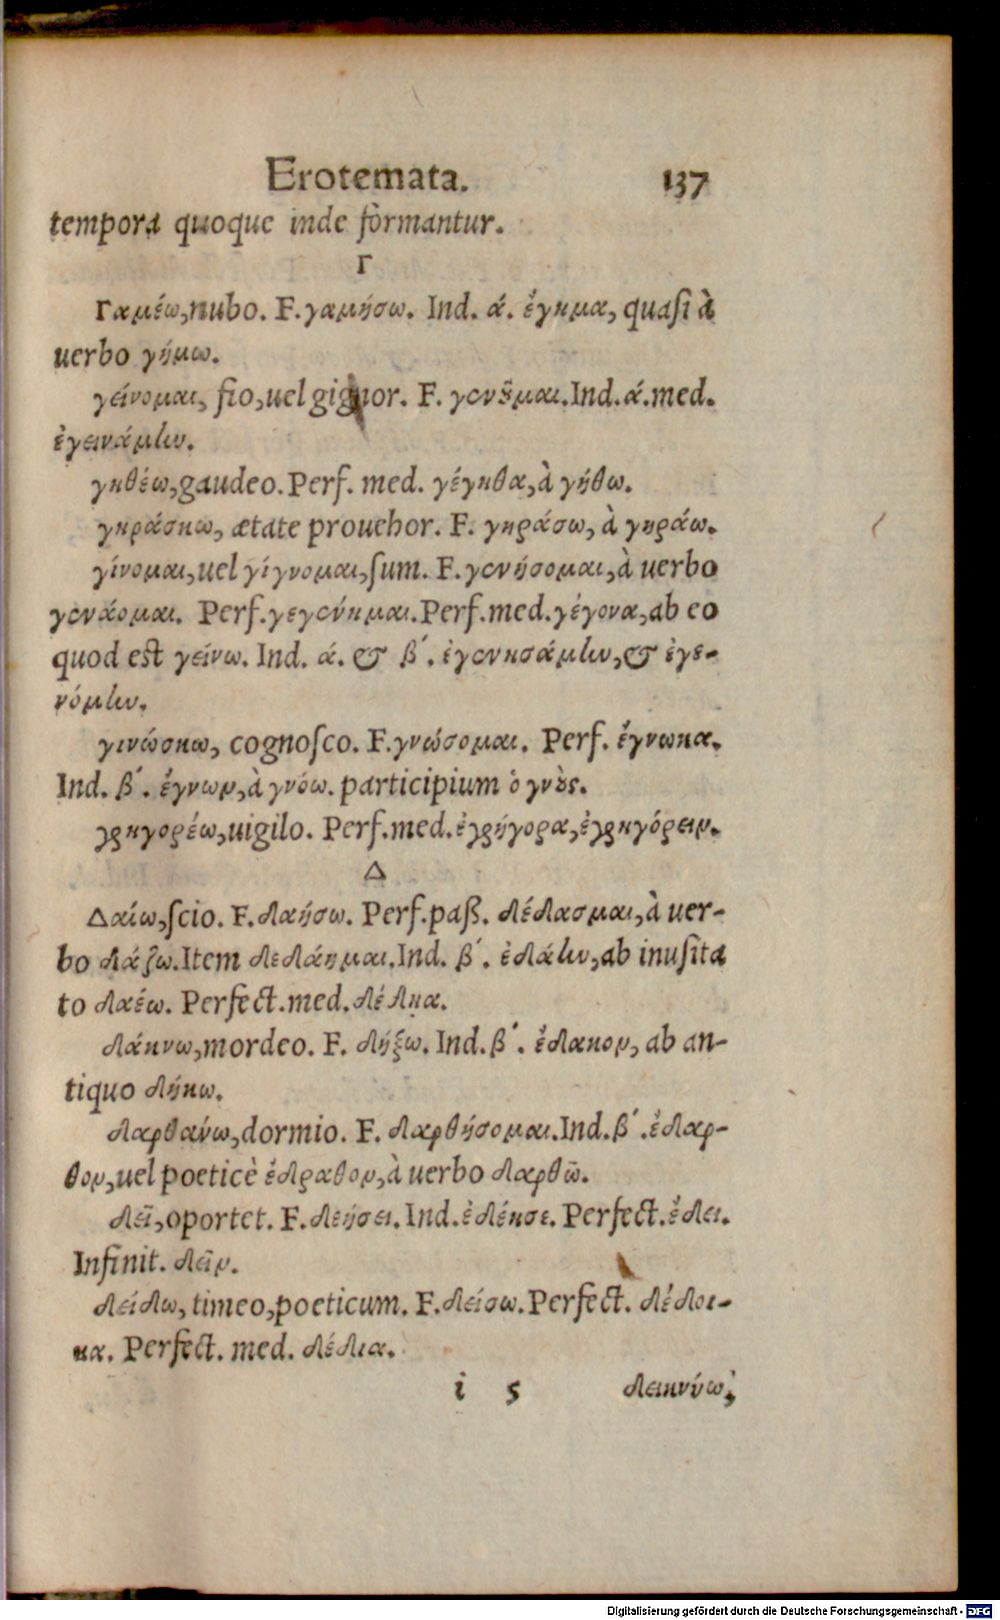 Erotemata. 137
tempora quoque inde formantur.
Γ
Γαμέω, nubo. F. γαμήσω. Ind. ά. ἔγημα, quaſi à
uerbo γήμω.
γείνομαι, fio, uel gignor. F. γενοῦμαι. Ind. ά. med.
ἐγεινάμην.
γηθέω, gaudeo. Perf. med. γέγηθα, à γήθω.
γηράσκω, ætate prouehor. F. γηράσω, à γηράω.
γίνομαι, uel γίγνομαι, ſum. F. γενήσομαι, à uerbo
γενάομαι. Perf. γεγένημαι. Perf. med. γέγονα, ab eo
quod est γείνω. Ind. ά. & β´. ἐγενησάμην, & ἐγε-
νόμην.
γινώσκω, cognoſco. F. γνώσομαι. Perf. ἔγνωκα.
Ind. β´. ἔγνων, à γνόω. participium ὁ γνοὺς.
γρηγορέω, uigilo. Perf. med. ἐγρήγορα, ἐγρηγόρειν.
Δ
Δαίω, ſcio. F. δαήσω. Perf. paſſ. δέδασμαι, à uer-
bo δάζω. Item δεδάημαι. Ind. β´. ἐδάην, ab inuſita
to δαέω. Perfect. med. δέδηα.
δάκνω, mordeo. F. δήξω. Ind. β´. ἔδακον, ab an-
tiquo δήκω.
δαρθάνω, dormio. F. δαρθήσομαι. Ind. β´. ἔδαρ-
θον, uel poeticè ἔδραθον, à uerbo δαρθῶ.
δεῖ, oportet. F. δεήσει. Ind. ἐδέησε. Perfect. ἔδει.
Infinit. δεῖν.
δείδω, timeo, poeticum. F. δείσω. Perfect. δέδοι-
κα. Perfect. med. δέδια.
i 5 δεικνύω,
Digitalisierung gefördert durch die Deutsche Forschungsgemeinschaft - DFG